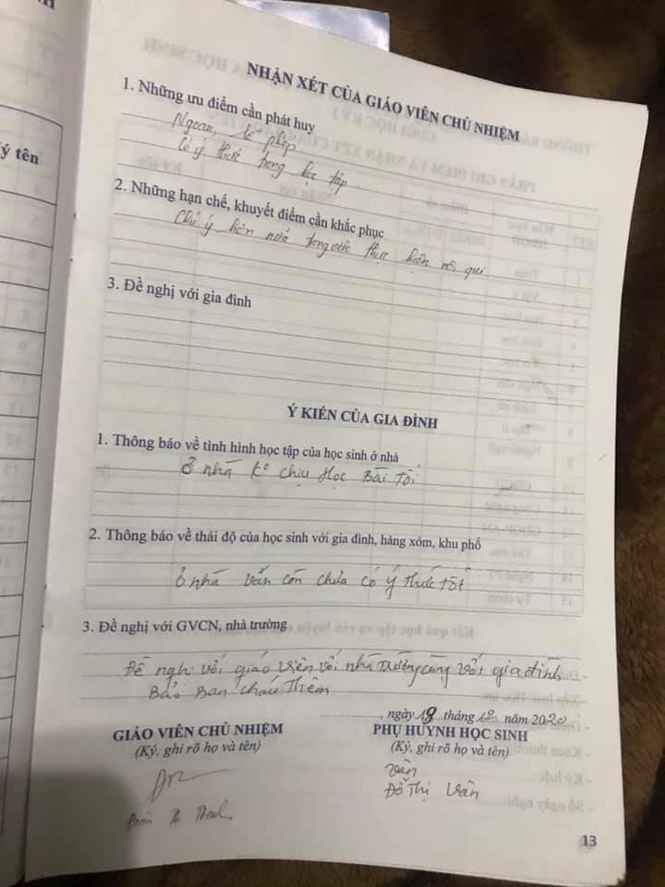 ý tên
NHẬN XÉT CỦA GIÁO VIÊN CHỦ NHIỆM
1. Những ưu điểm cần phát huy
Ngoan, lễ phép
Có ý thức trong học tập.
2. Những hạn chế, khuyết điểm cần khắc phục
Chú ý hơn nữa trong việc thực hiện nội qui
3. Đề nghị với gia đình
Ý KIẾN CỦA GIA ĐÌNH
1. Thông báo về tình hình học tập của học sinh ở nhà
ở nhà ko chịu Học Bài Tối
2. Thông báo về thái độ của học sinh với gia đình, hàng xóm, khu phố
ở nhà vẫn còn chưa có ý thức Tốt
3. Đề nghị với GVCN, nhà trường
Đề nghị với giáo viên với nhà Trường cùng với gia đình
Bảo Ban cháu Thêm
, ngày 18 tháng 12 năm 2020
GIÁO VIÊN CHỦ NHIỆM PHỤ HUYNH HỌC SINH
(Ký, ghi rõ họ và tên) (Ký, ghi rõ họ và tên)
Vân
Đỗ Thị Vân
13